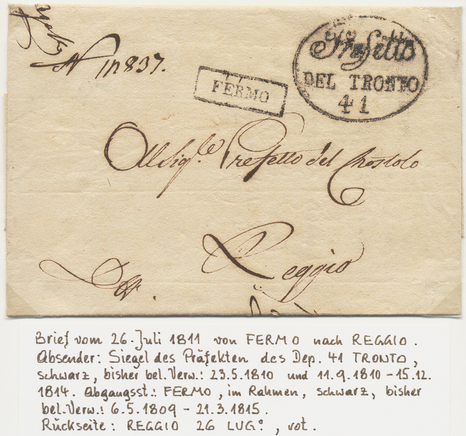 N 11837.
Prefetto
DEL TRONTO
41
FERMO
Al Sig.le Prefetto del Crostolo
Reggio
Brief vom 26. Juli 1811 von FERMO nach REGGIO.
Absender: Siegel des Präfekten des Dep. 41 TRONTO,
schwarz, bisher bel. Verw.: 23.5.1810 und 11.9.1810 - 15.12.
1814. Abgangsst.: FERMO, im Rahmen, schwarz, bisher
bel. Verw.: 6.5.1809 - 21.3.1815.
Rückseite: REGGIO 26 LUG°, rot.